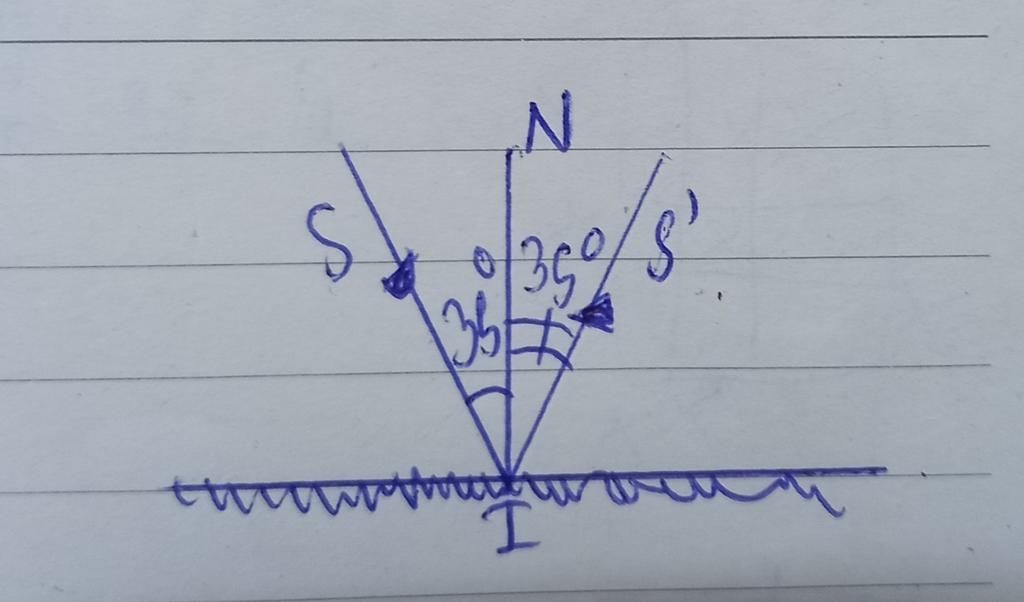 N
S
S'
35°
35°
I